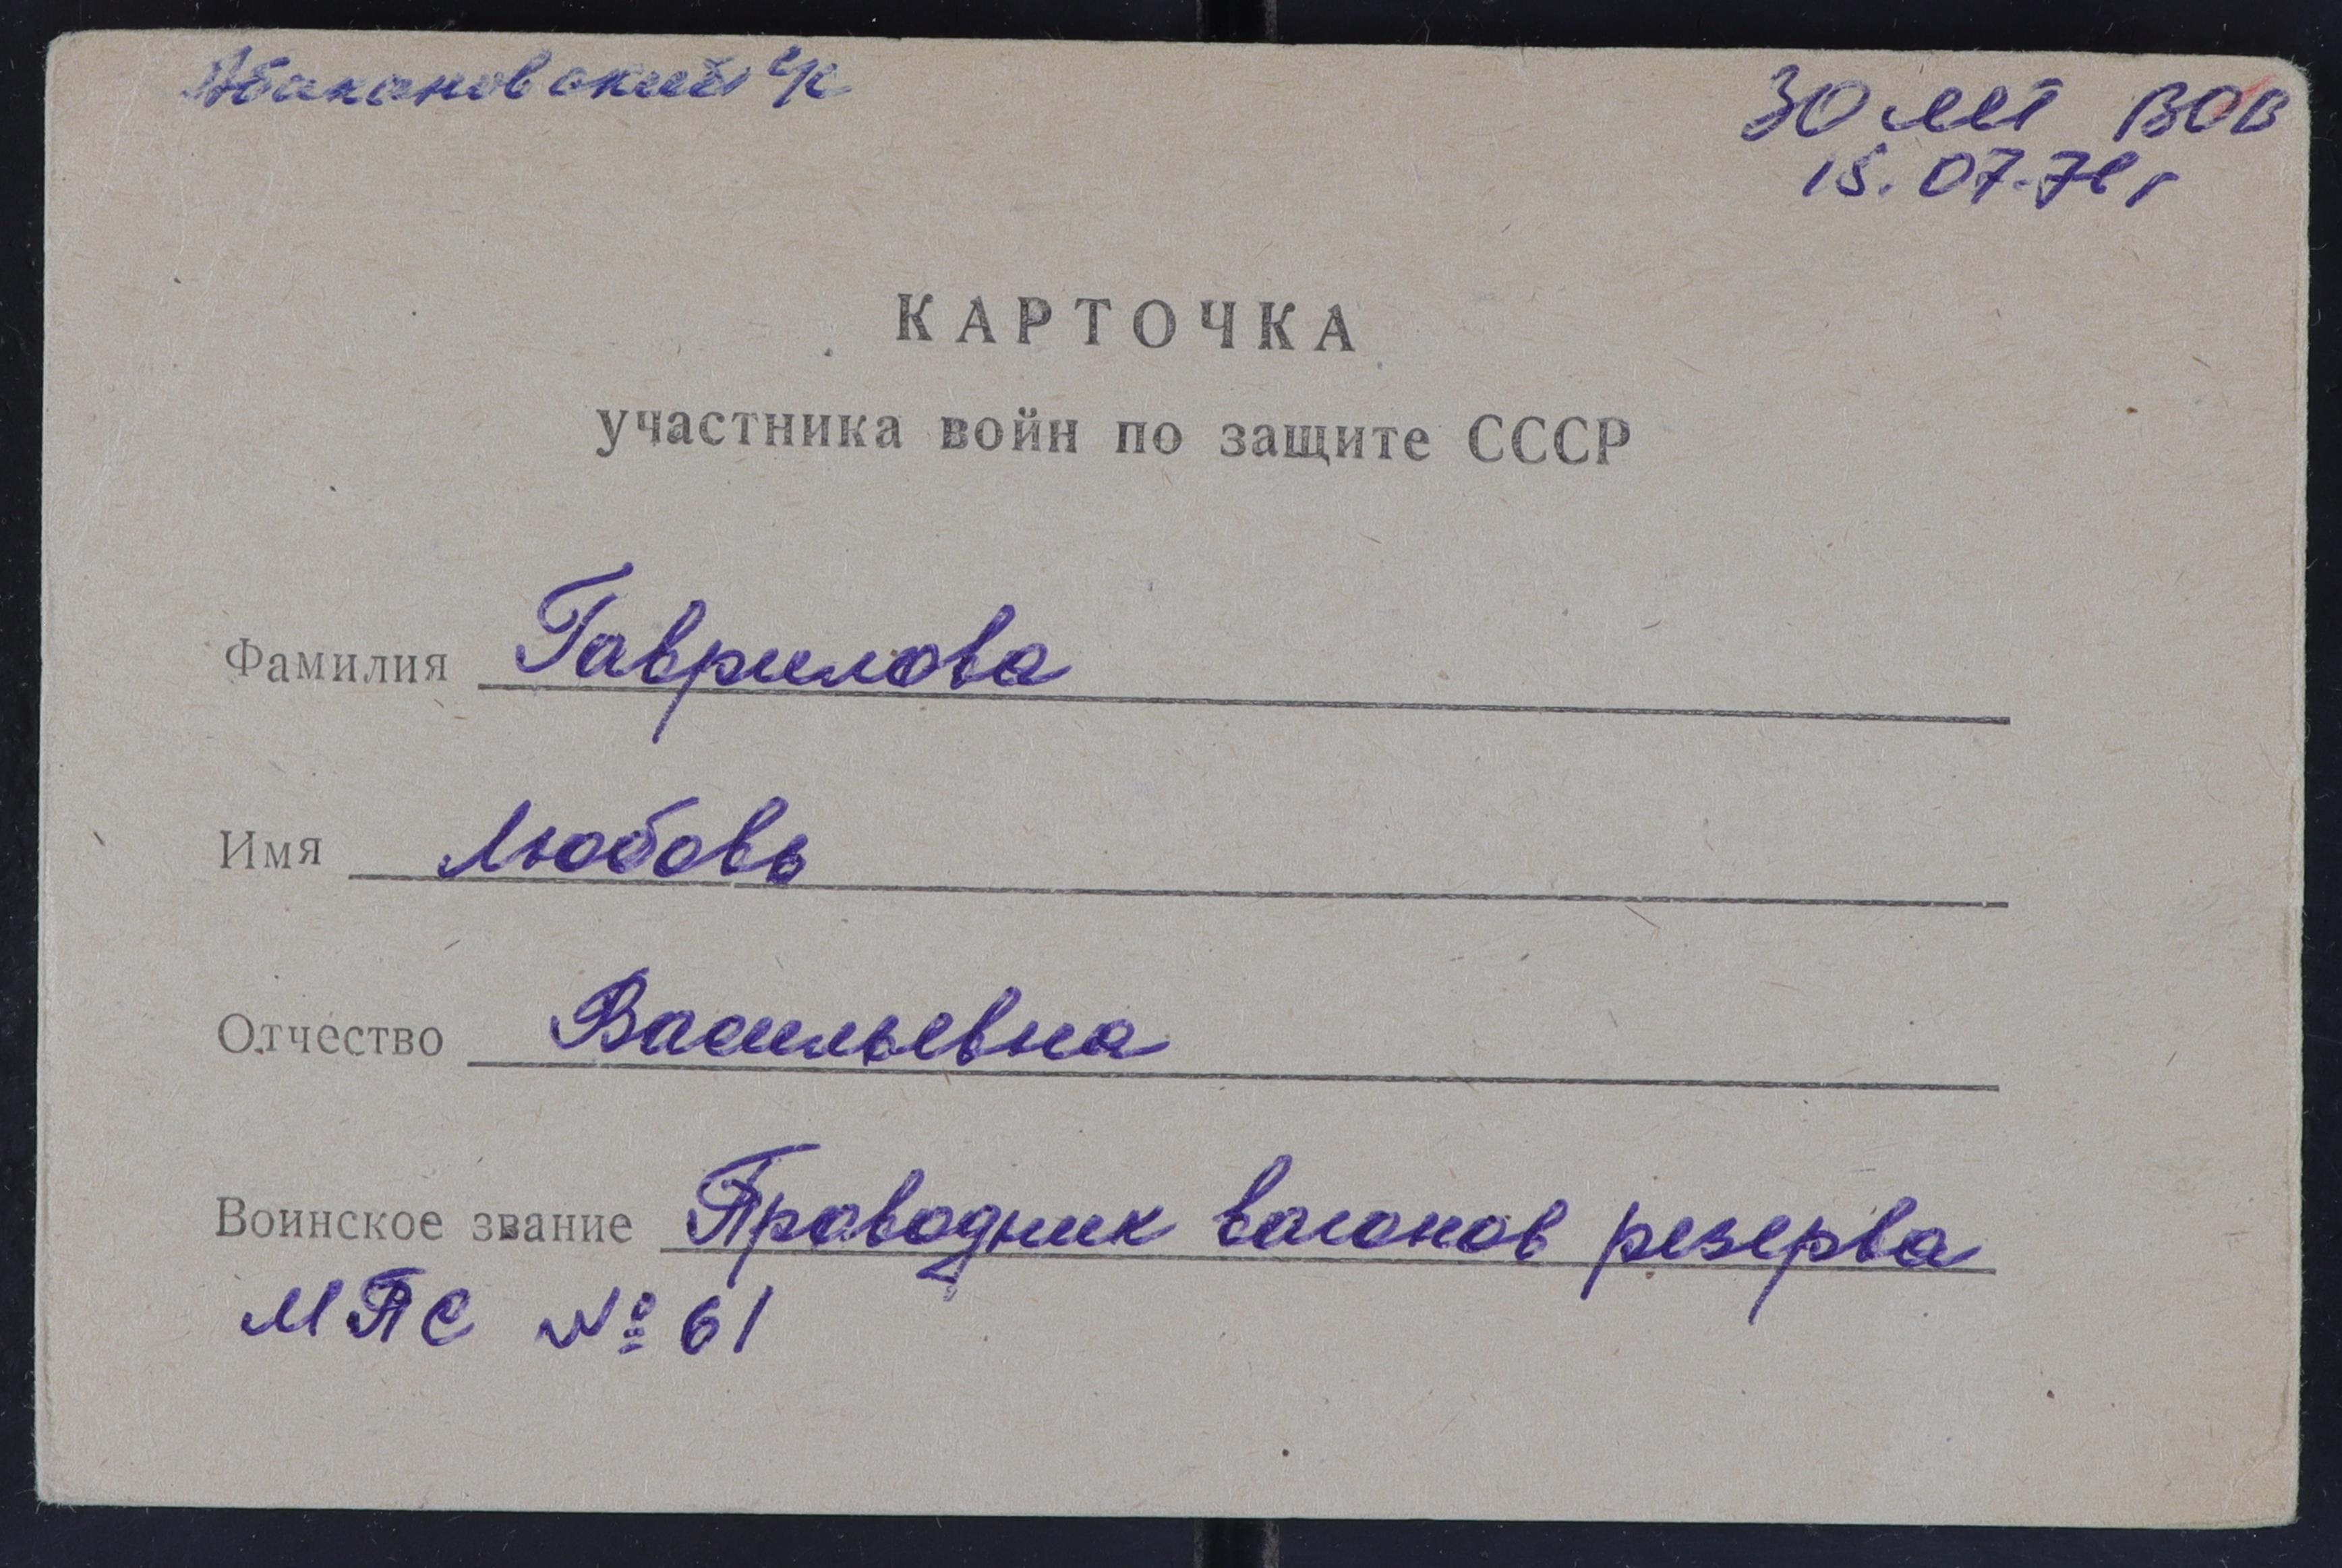 Абакановский ч/с
30 лет ВОВ
15.07.76 г
КАРТОЧКА
участника войн по защите СССР
Фамилия Гаврилова
Имя Любовь
Отчество Васильевна
Воинское звание Проводник вагонов резерва
МПС № 61